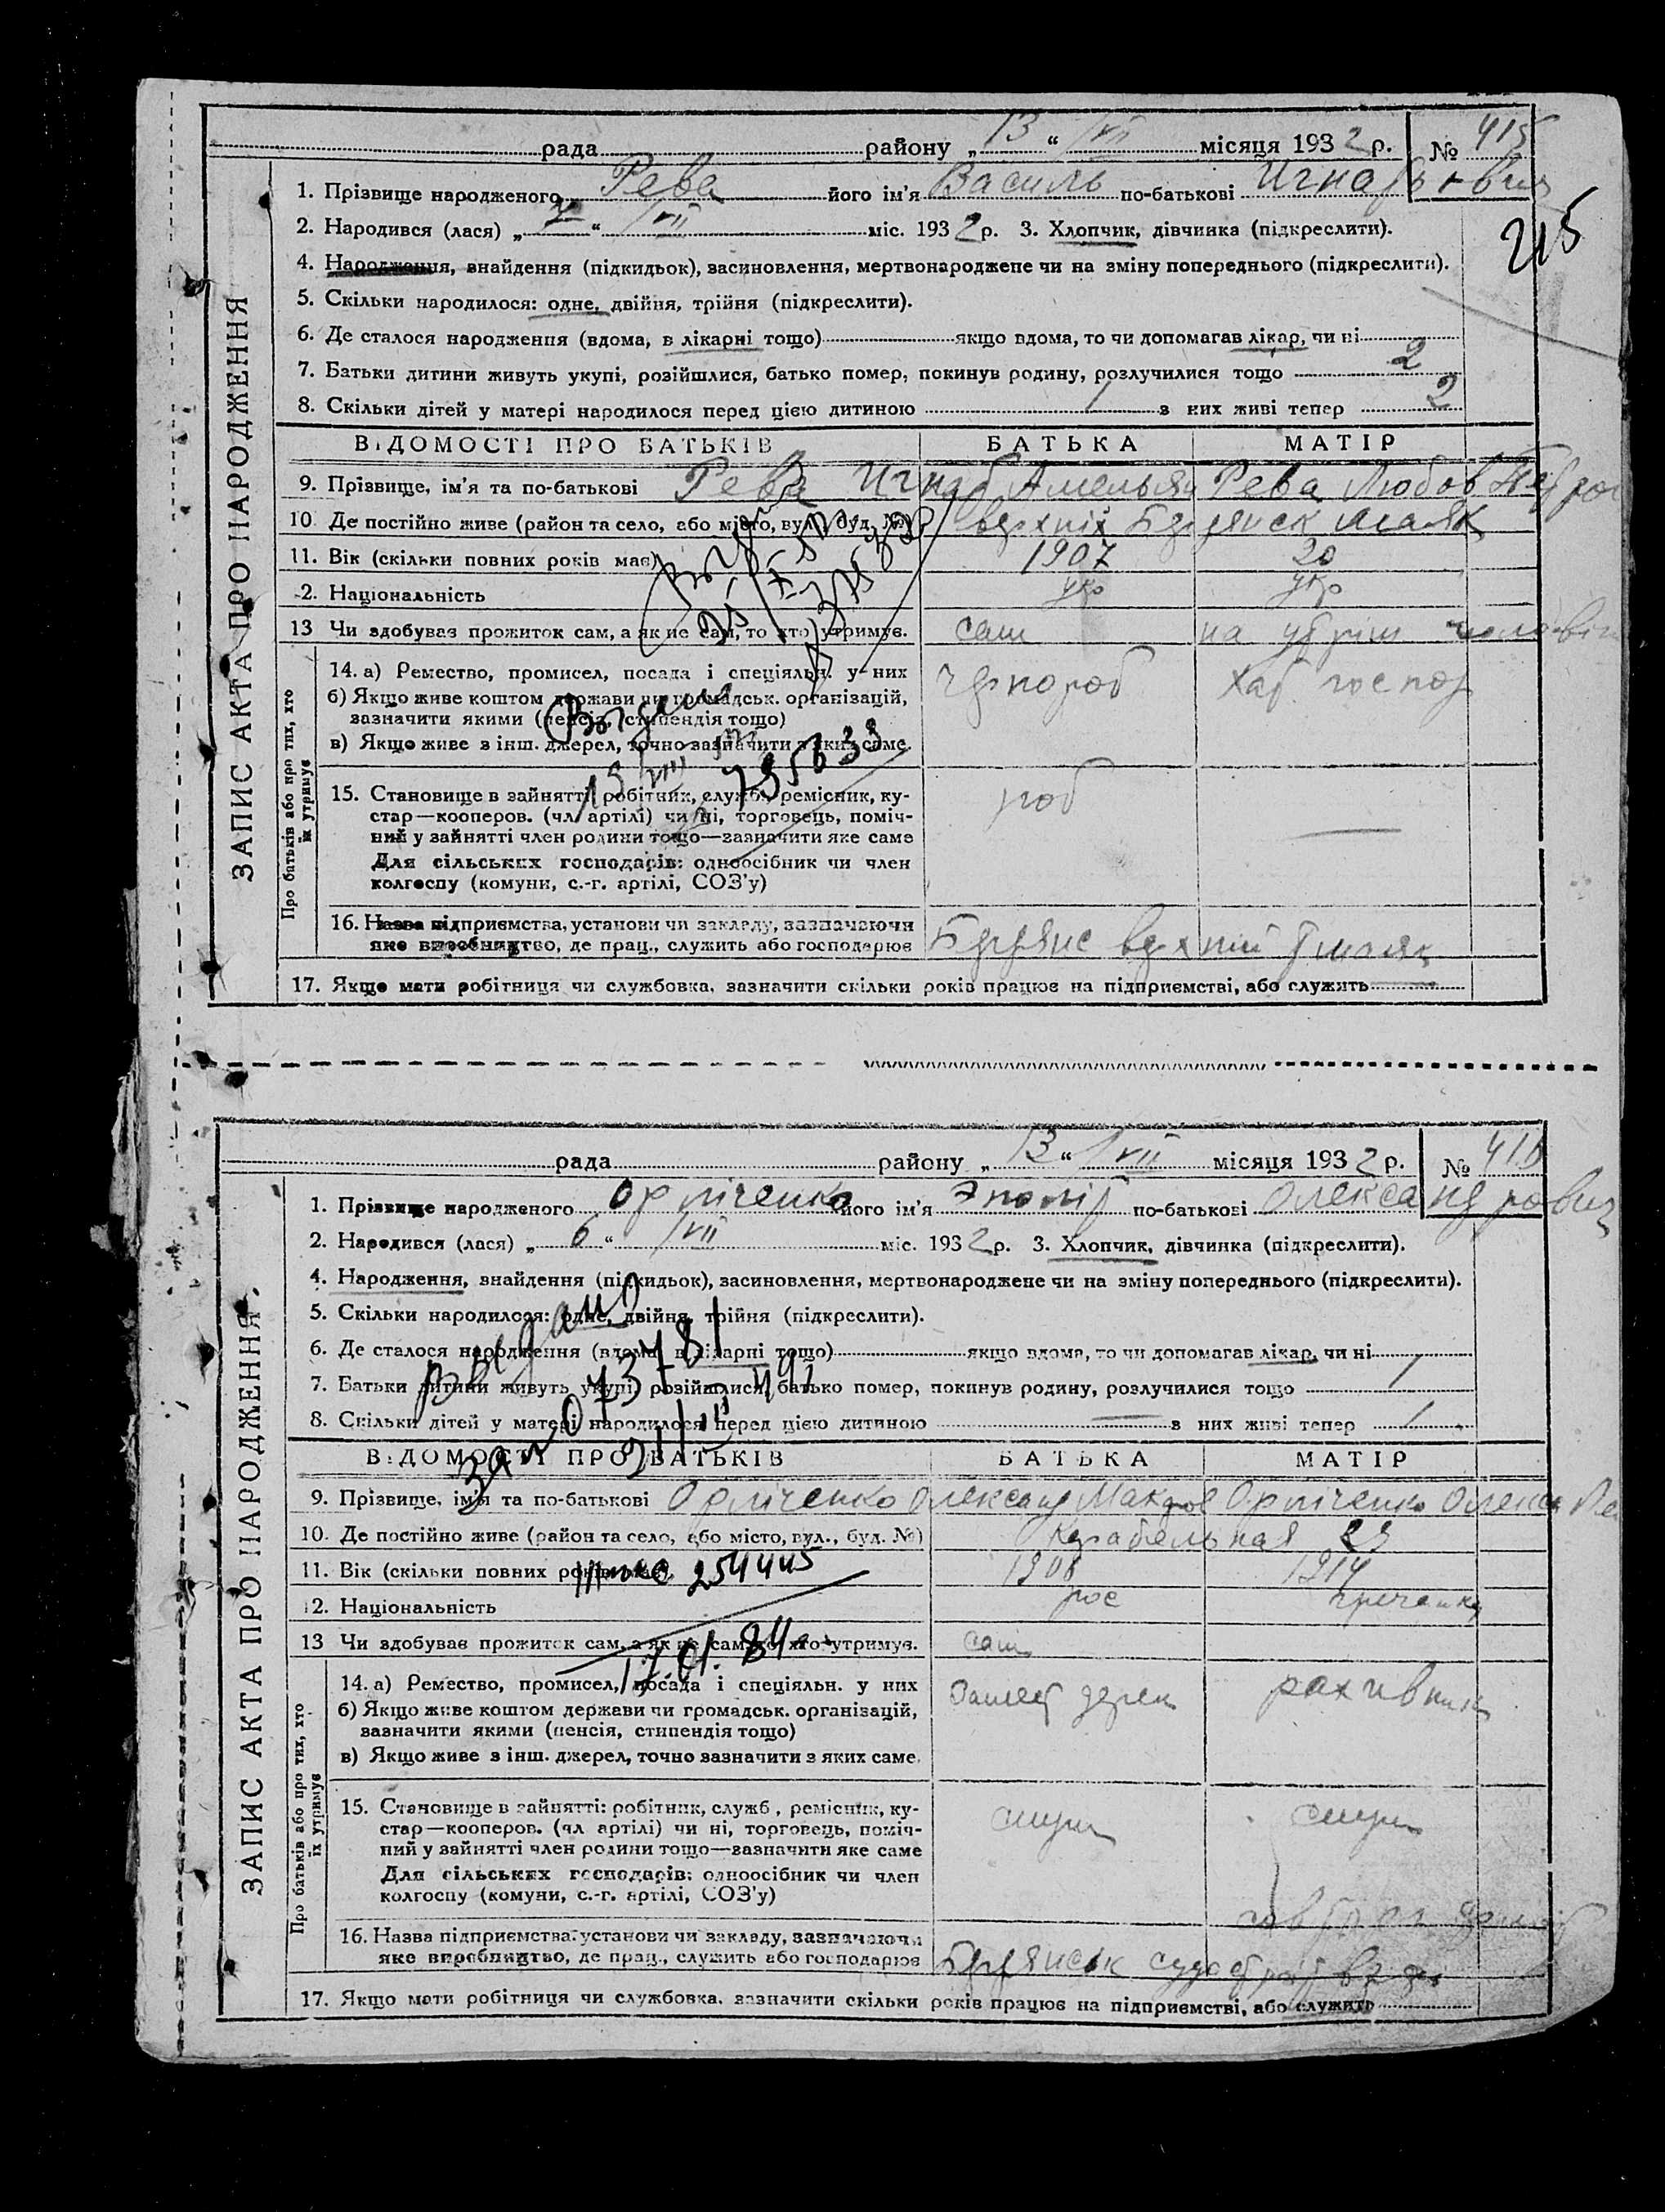 рада района „ 13 “ VII місяця 1932 р. № 415
1. Прізвище народженого Рева його ім'я Василь по-батькові Игнатович
215
2. Народився (лася) „ “ VII міс. 1932 р. 3. Хлопчик, дівчинка (підкреслити).
4. Народження, знайдення (підкидьок), засиновлення, мертвонароджене чи на зміну попереднього (підкреслити).
5. Скільки народилося: одне, двійня, трійня (підкреслити).
6. Де сталося народження (вдома, в лікарні тощо) якщо вдома, то чи допомагав лікар, чи ні
7. Батьки дитини живуть укупі, розійшлися, батько помер, покинув родину, розлучилися тощо 2
8. Скільки дітей у матері народилося перед цією дитиною 1 з них живі тепер 2
ЗАПИС АКТА ПРО НАРОДЖЕННЯ
ВІДОМОСТІ ПРО БАТЬКІВ БАТЬКА МАТІР
9. Прізвище, ім'я та по-батькові Рева Игнат Амельян Рева Любов
10. Де постійно живе (район та село, або місто, вул., буд. №) верхній Бердянск маяк
11. Вік (скільки повних років має) 1907 20
12. Національність укр укр
13 Чи здобуває прожиток сам, а як не сам, то хто утримує. сам на утрим чоловіка
Про батьків або про тих, хто їх утримує
14. а) Ремество, промисел, посада і спеціяльн. у них чернороб хат господ
б) Якщо живе коштом держави чи громадськ. організацій,
зазначити якими (пенсія, стипендія тощо)
в) Якщо живе з інш. джерел, точно зазначити з яких саме.
15. Становище в зайнятті: робітник, служб., ремісник, ку-
стар—кооперов. (чл артілі) чи ні, торговець, поміч-
ний у зайнятті член родини тощо—зазначити яке саме
Для сільських господарів: одноосібник чи член
колгоспу (комуни, с.-г. артілі, СОЗ'у)
роб
16. Назва підприємства, установи чи закладу, зазначаючи
яке виробництво, де прац., служить або господарює
17. Якщо мати робітниця чи службовка, зазначити скільки років працює на підприємстві, або служить
рада району „ 13 “ VII місяця 1932 р. № 416
1. Прізвище народженого його ім'я по-батькові Олександрович
2. Народився (лася) „ 6 “ VII міс. 1932 р. 3. Хлопчик, дівчинка (підкреслити).
4. Народження, знайдення (підкидьок), засиновлення, мертвонароджене чи на зміну попереднього (підкреслити).
5. Скільки народилося: одне, двійня, трійня (підкреслити).
6. Де сталося народження (вдома, в лікарні тощо) якщо вдома, то чи допомагав лікар, чи ні
7. Батьки дитини живуть укупі, розійшлися, батько помер, покинув родину, розлучилися тощо 1
8. Скільки дітей у матері народилося перед цією дитиною — з них живі тепер 1
ЗАПИС АКТА ПРО НАРОДЖЕННЯ
ВІДОМОСТІ ПРО БАТЬКІВ БАТЬКА МАТІР
9. Прізвище, ім'я та по-батькові Олександ Олекса
10. Де постійно живе (район та село, або місто, вул., буд. №) Карабельная 23
11. Вік (скільки повних років має) 1908 1914
254445
12. Національність рос гречанка
13 Чи здобуває прожиток сам, а як не сам, то хто утримує. сам
17.01.84
Про батьків або про тих, хто їх утримує
14. а) Ремество, промисел, посада і спеціяльн. у них рахивник
б) Якщо живе коштом держави чи громадськ. організацій,
зазначити якими (пенсія, стипендія тощо)
в) Якщо живе з інш. джерел, точно зазначити з яких саме.
15. Становище в зайнятті: робітник, служб., ремісник, ку-
стар—кооперов. (чл артілі) чи ні, торговець, поміч-
ний у зайнятті член родини тощо—зазначити яке саме
Для сільських господарів: одноосібник чи член
колгоспу (комуни, с.-г. артілі, СОЗ'у)
служ служ
16. Назва підприємства, установи чи закладу, зазначаючи
яке виробництво, де прац., служить або господарює Бердянськ
17. Якщо мати робітниця чи службовка, зазначити скільки років працює на підприємстві, або служить